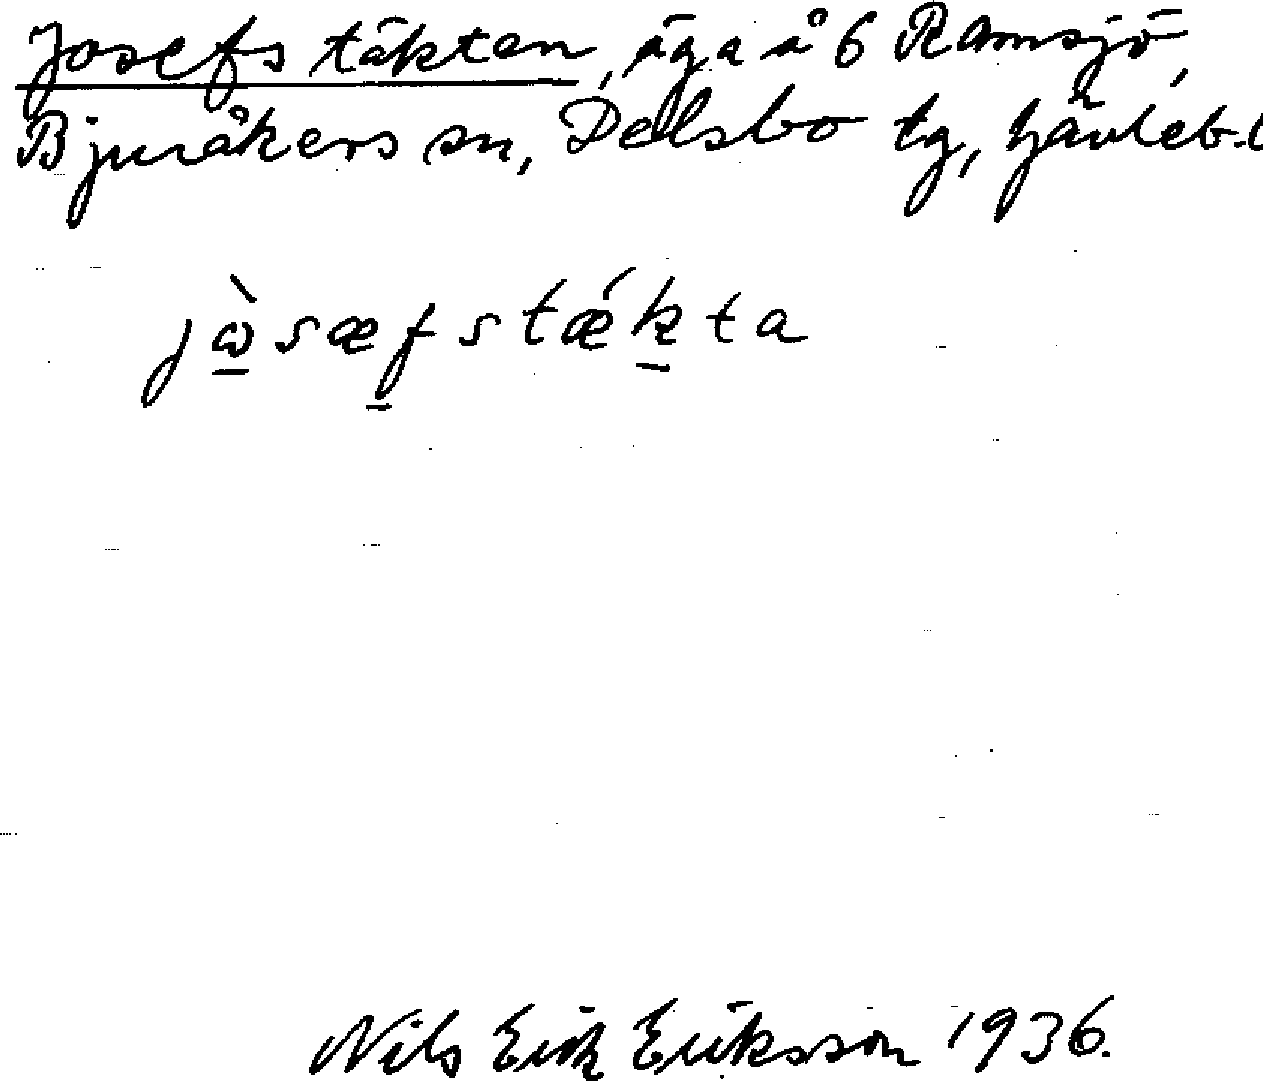 Josefstäkten, äga å 6 Ramsjö,
Bjuråkers sn, Delsbo tg, Gävleb. l
jὼsæfstǽkta
Nils Erik Eriksson 1936.